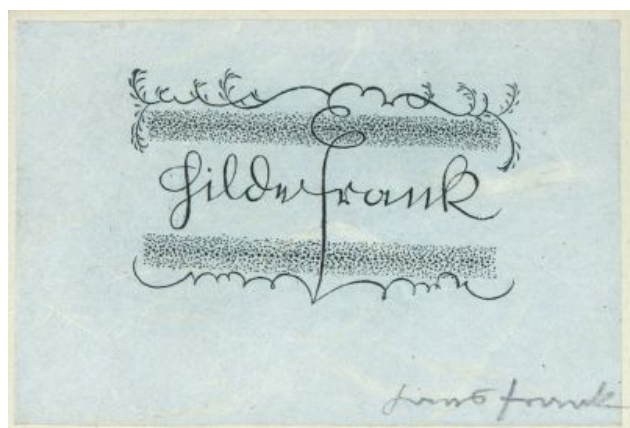 Hilde Frank
Hans Frank